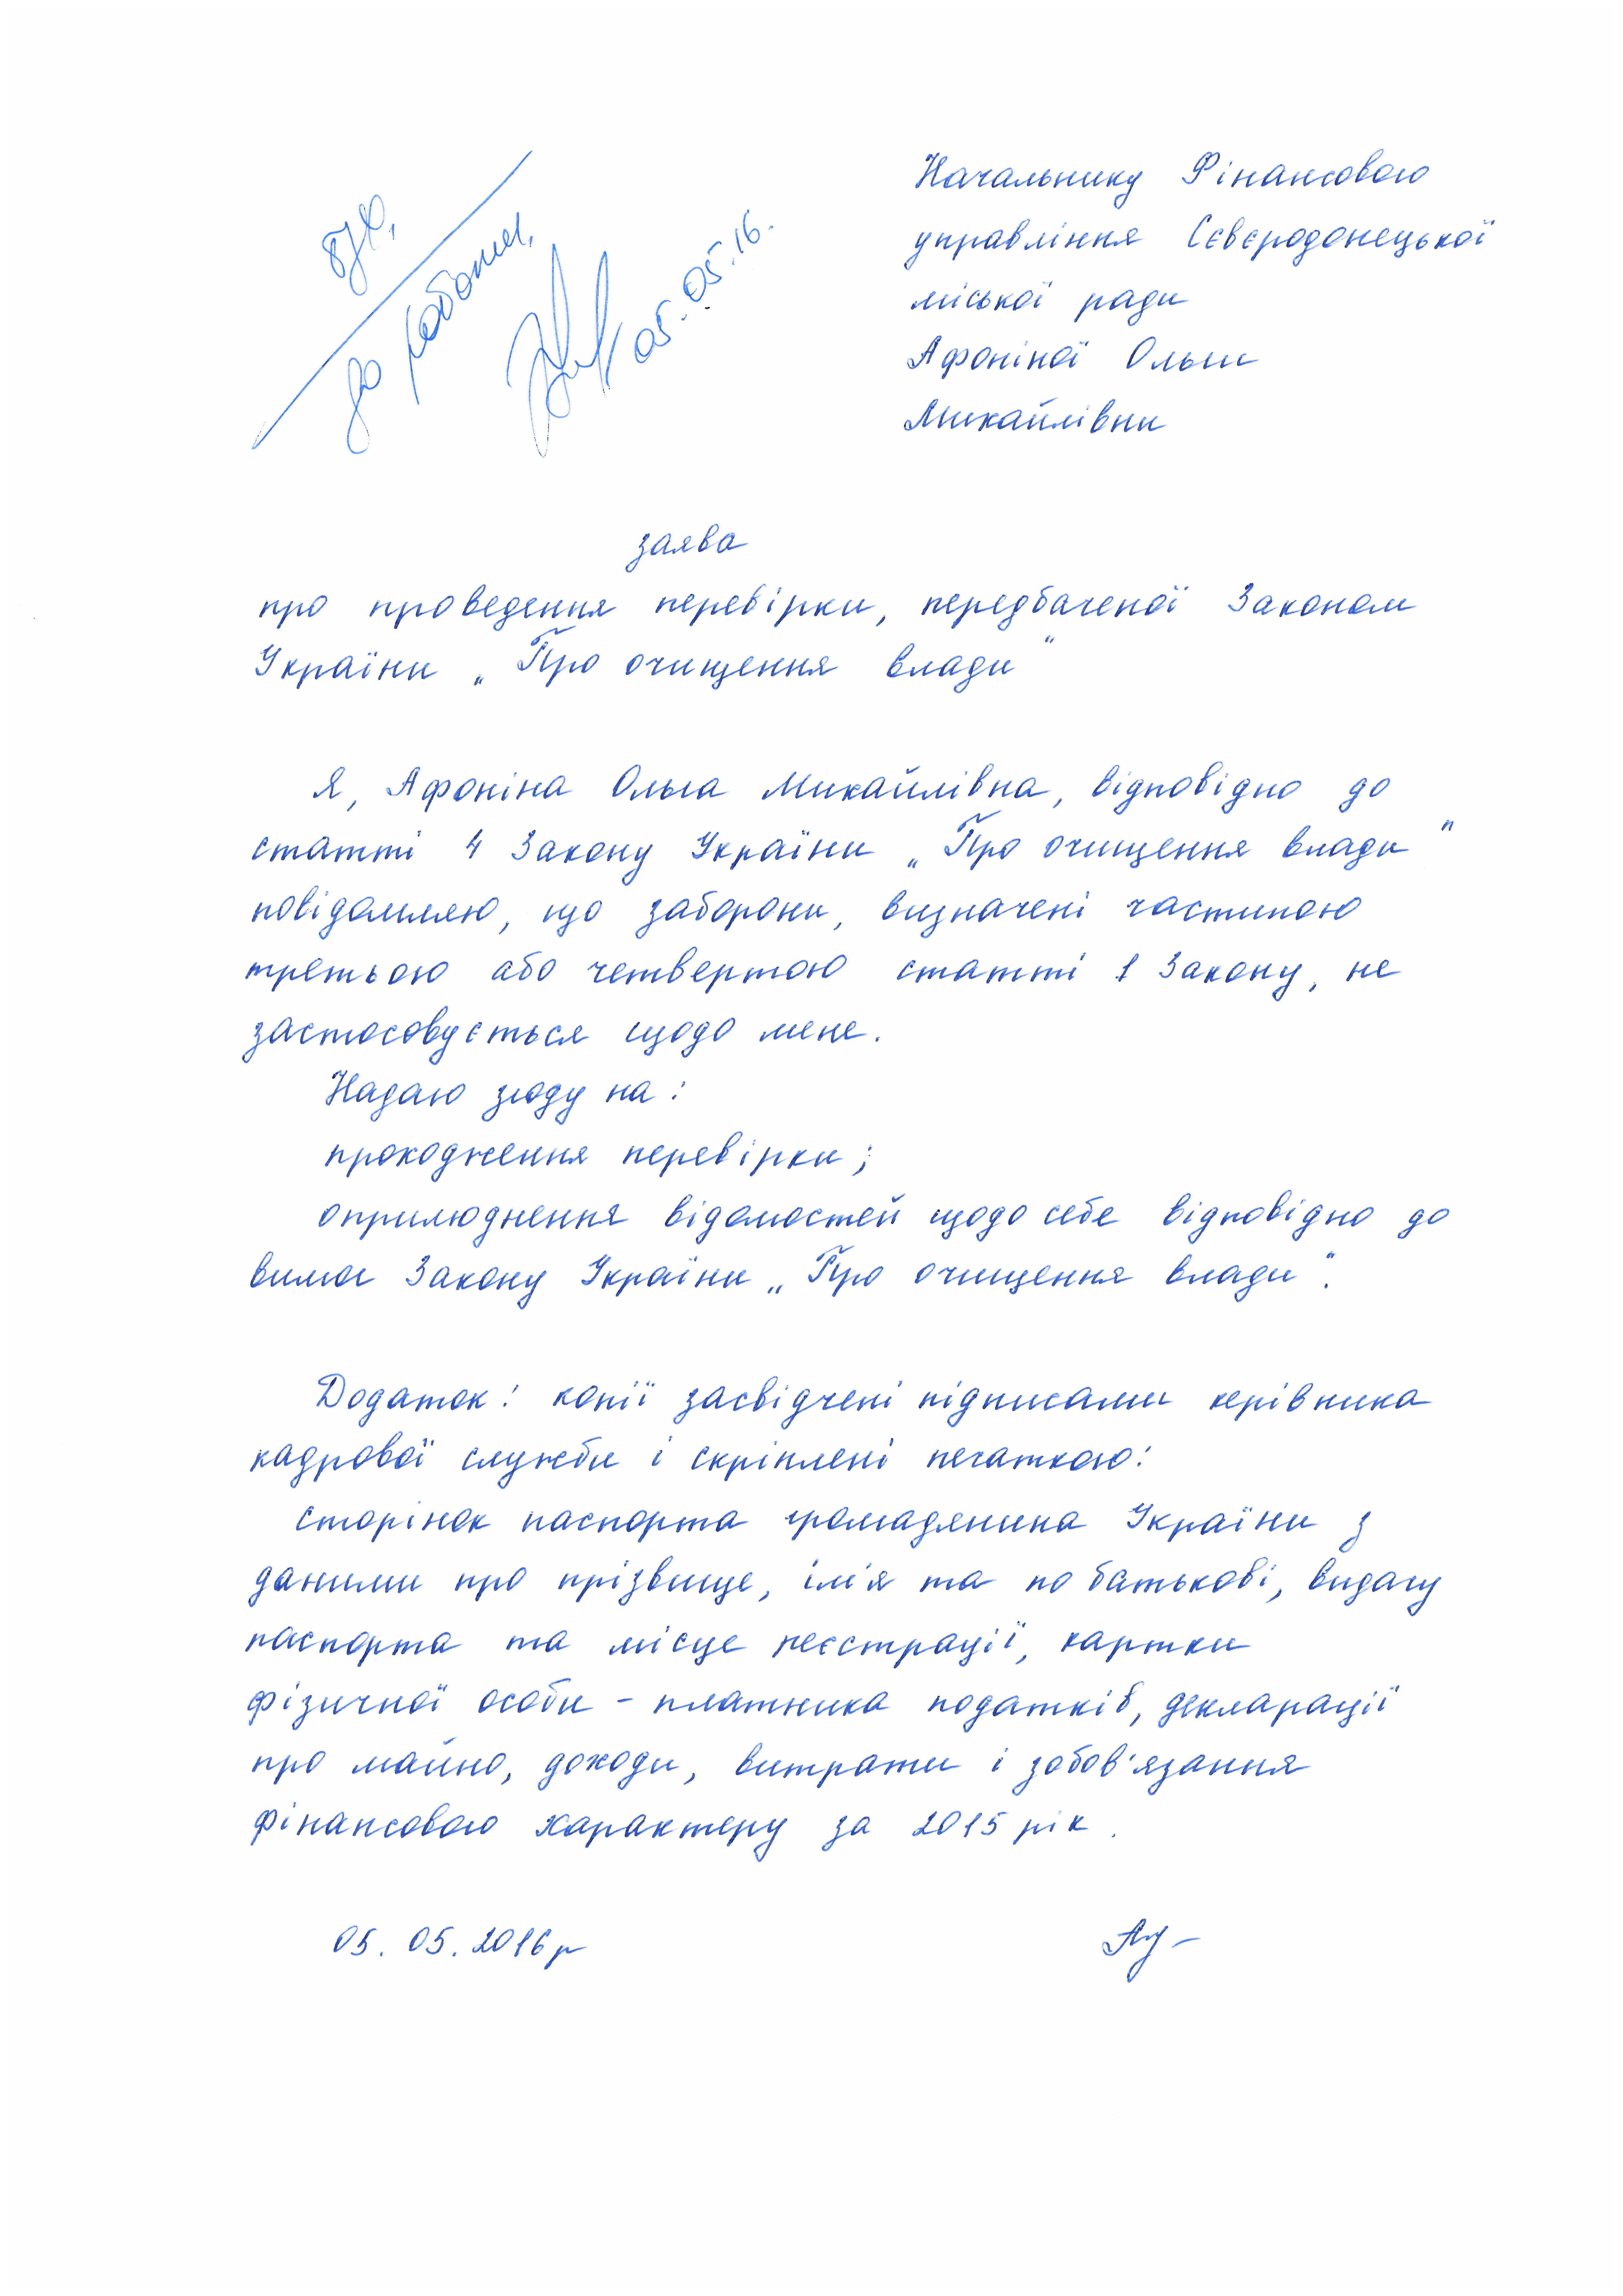 до роботи,
05.05.16.
Начальнику Фінансового
управління Сєвєродонецької
міської ради
Афоніної Ольги
Михайлівни
заява
про проведення перевірки, передбаченої Законом
України „Про очищення влади"
Я, Афоніна Ольга Михайлівна, відповідно до
статті 4 Закону України „Про очищення влади"
повідомляю, що заборони, визначені частиною
третьою або четвертою статті 1 Закону, не
застосовується щодо мене.
Надаю згоду на:
проходження перевірки;
оприлюднення відомостей щодо себе відповідно до
вимог Закону України „Про очищення влади".
Додаток: копії засвідчені підписами керівника
кадрової служби і скріплені печаткою:
сторінок паспорта громадянина України з
даними про прізвище, ім'я та по батькові, видачу
паспорта та місце реєстрації, картки
фізичної особи - платника податків, декларації
про майно, доходи, витрати і зобов'язання
фінансового характеру за 2015 рік.
05.05.2016р